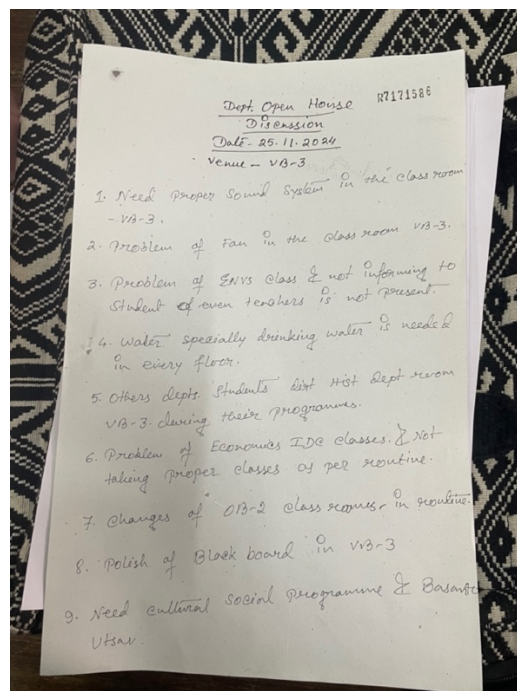 Dept. Open House
R7171586
Discussion
Date - 25.11.2024
Venue - VB-3
1. Need proper Sound System in the class room
- VB-3.
2. Problem of Fan in the class room VB-3.
3. Problem of ENVS class & not informing to
Student of even teachers is not present.
4. Water specially drinking water is needed
in every floor.
5. Others depts. Students dirt Hist Dept room
VB-3. during their programmes.
6. Problem of Economics IDC classes. & Not
taking proper classes as per routine.
7. Changes of OB-2 class rooms - in routine.
8. Polish of Black board in VB-3
9. Need cultural social programme & Basanta
Utsav.